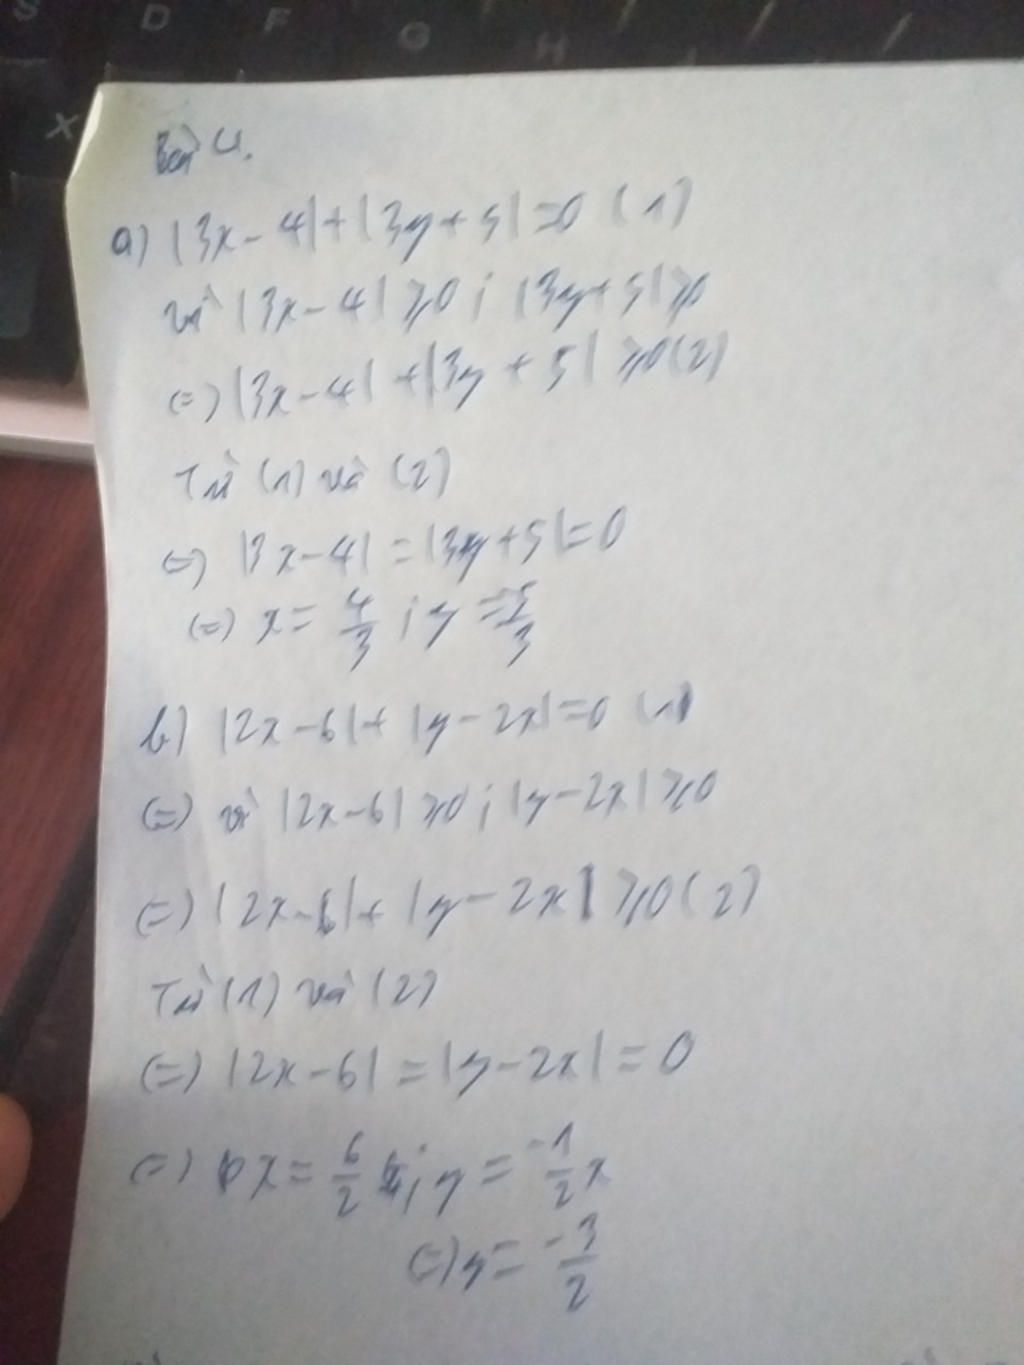 S D F G H
X
Bài 4.
a) |3x - 4| + |3y + 5| = 0 (1)
vì |3x - 4| ≥ 0 ; |3y + 5| ≥ 0
(=) |3x - 4| + |3y + 5| ≥ 0 (2)
Từ (1) và (2)
(=) |3x - 4| = |3y + 5| = 0
(=) x = 4/3 ; y = -5/3
b) |2x - 6| + |y - 2x| = 0 (1)
(=) vì |2x - 6| ≥ 0 ; |y - 2x| ≥ 0
(=) |2x - 6| + |y - 2x| ≥ 0 (2)
Từ (1) và (2)
(=) |2x - 6| = |y - 2x| = 0
(=) x = 6/2 ; y = -1/2 x
(=) y = -3/2